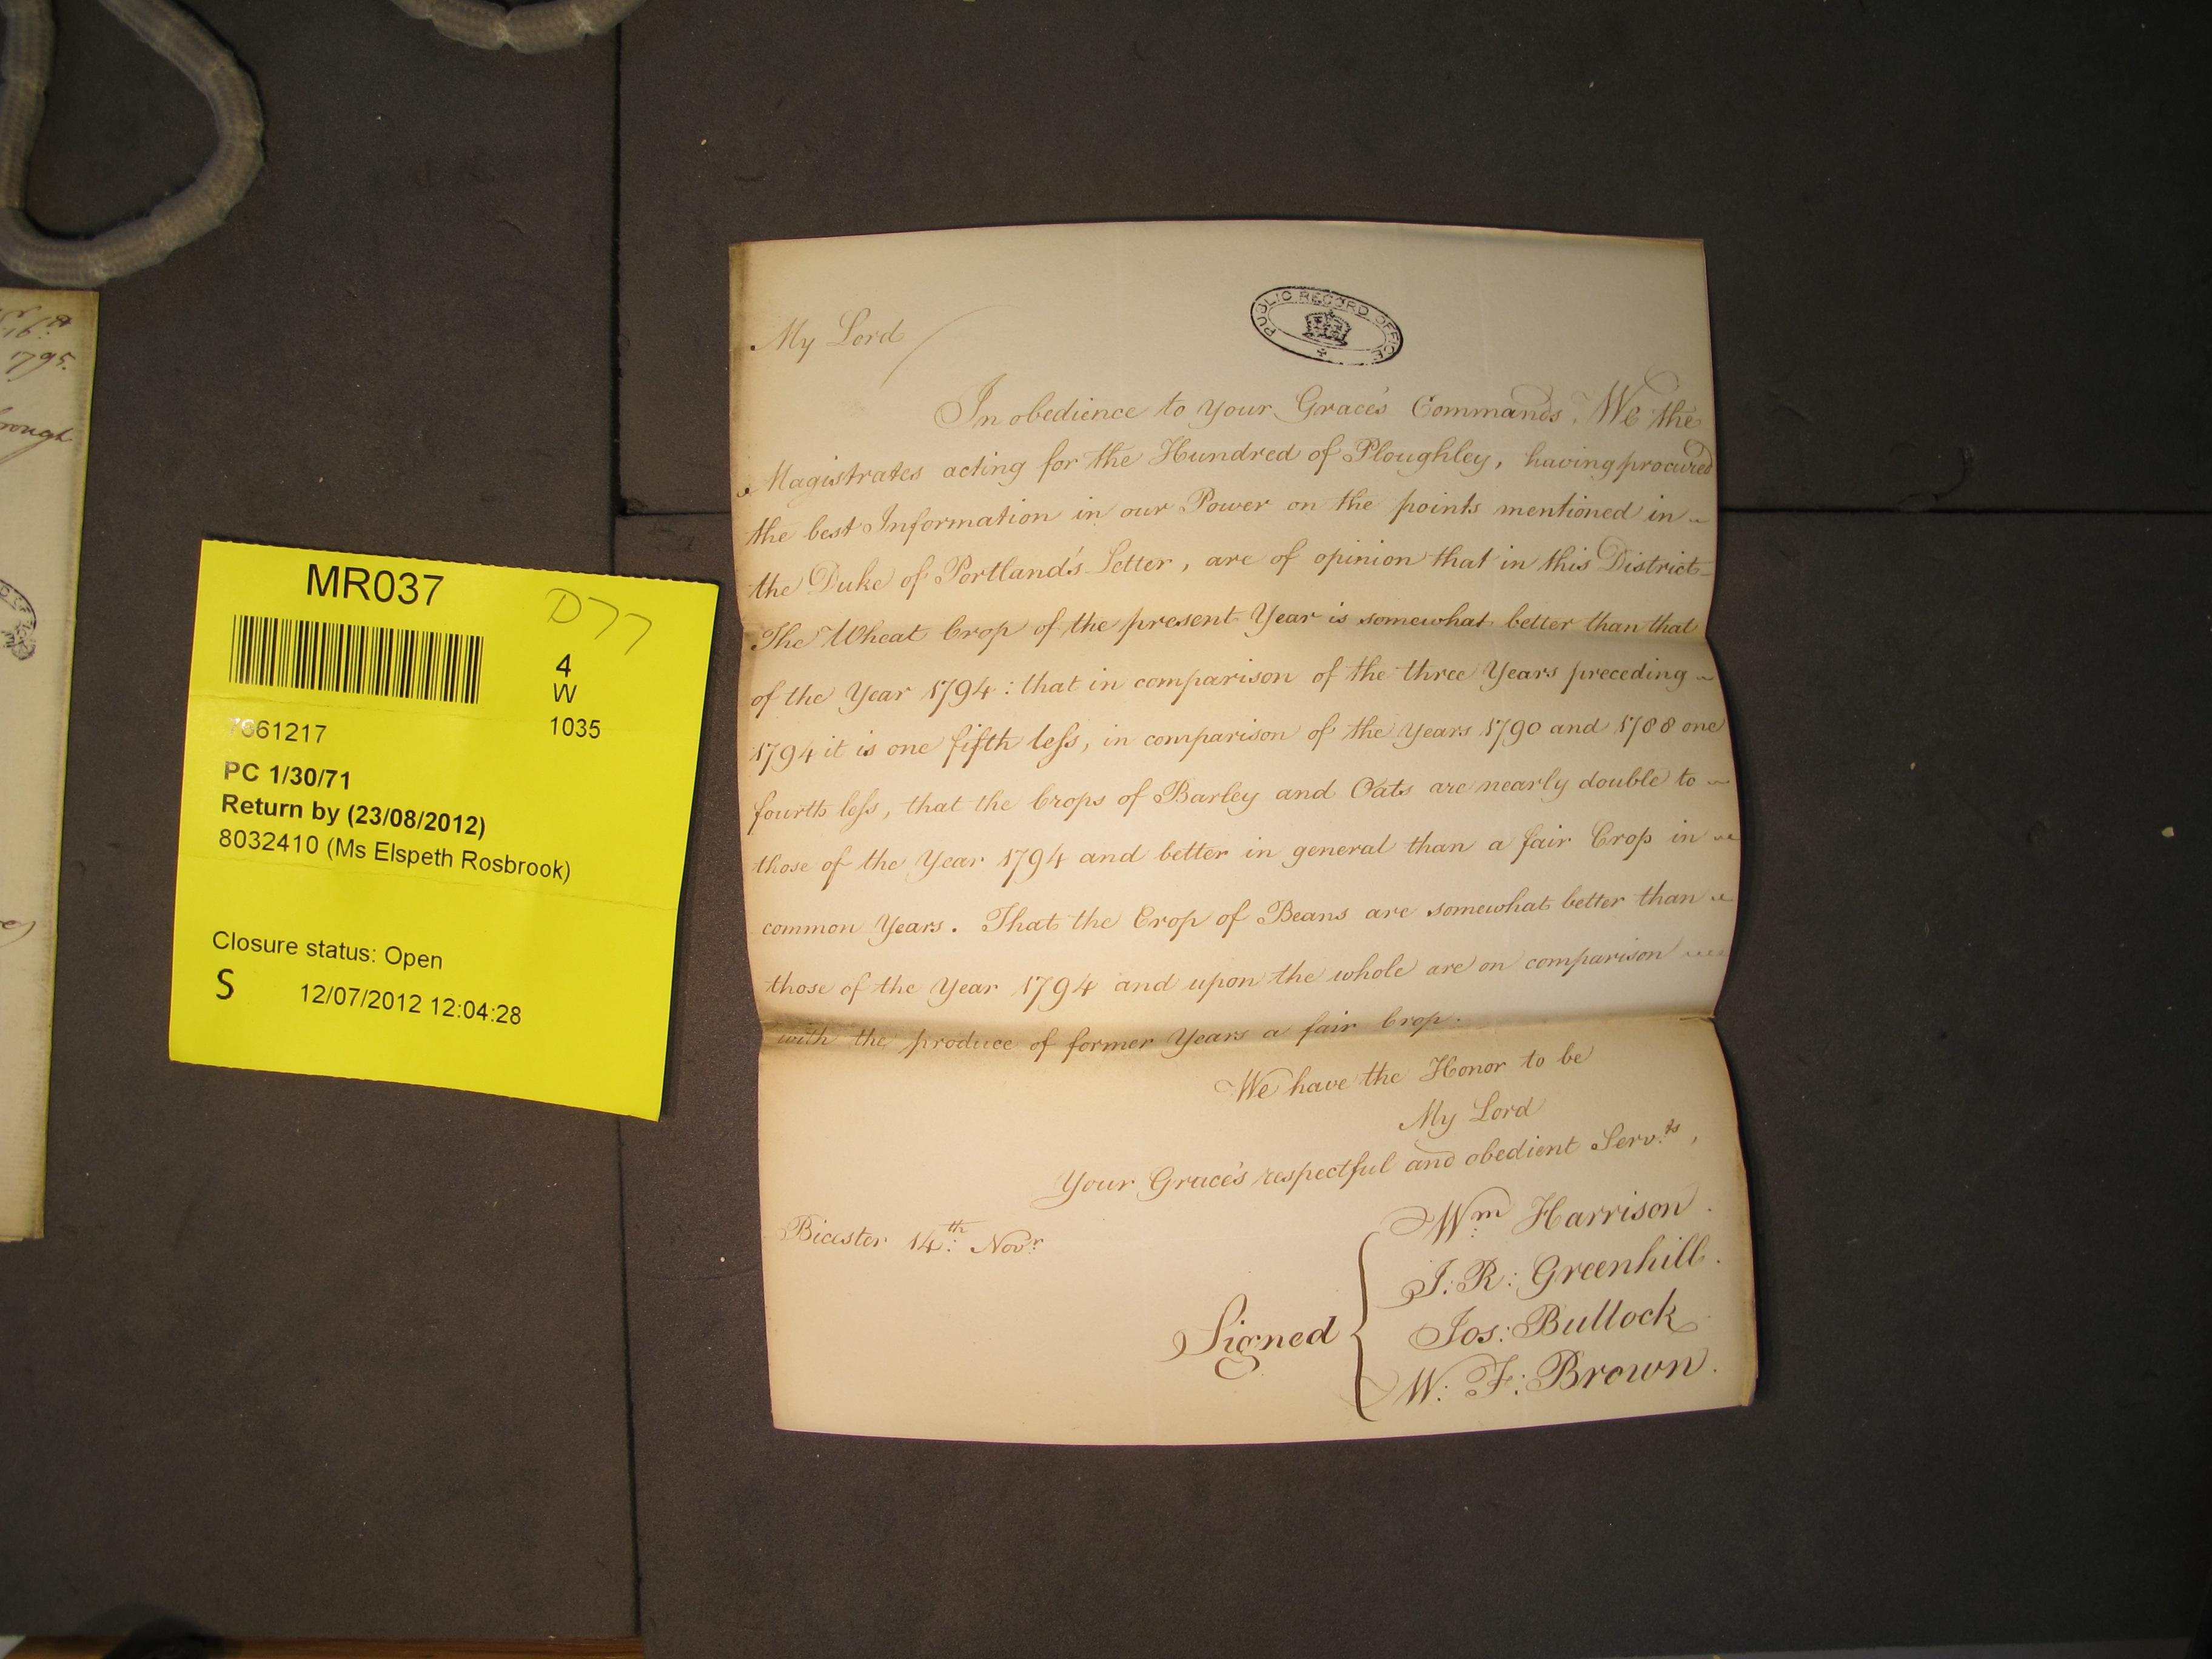 My Lord
PUBLIC RECORD OFFICE
In obedience to your Grace's Commands. We the
Magistrates acting for the Hundred of Ploughley, having procured
the best Information in our Power on the points mentioned in
the Duke of Portland's Letter, are of opinion that in this District
The Wheat Crop of the present Year is somewhat better than that
of the Year 1794: that in comparison of the three Years preceding
1794 it is one fifth less, in comparison of the Years 1790 and 1788 one
fourth less, that the Crops of Barley and Oats are nearly double to
those of the Year 1794 and better in general than a fair Crop in
common Years. That the Crop of Beans are somewhat better than
those of the Year 1794 and upon the whole are on comparison
with the produce of former Years a fair Crop.
We have the Honor to be
My Lord
Your Grace's respectful and obedient Serv.ts,
Bicester 14th: Novr
Wm Harrison.
J: R: Greenhill.
Signed
Jos: Bullock
W: F: Brown.
MR037
D77
4
W
7661217
1035
PC 1/30/71
Return by (23/08/2012)
8032410 (Ms Elspeth Rosbrook)
Closure status: Open
S
12/07/2012 12:04:28
1795.